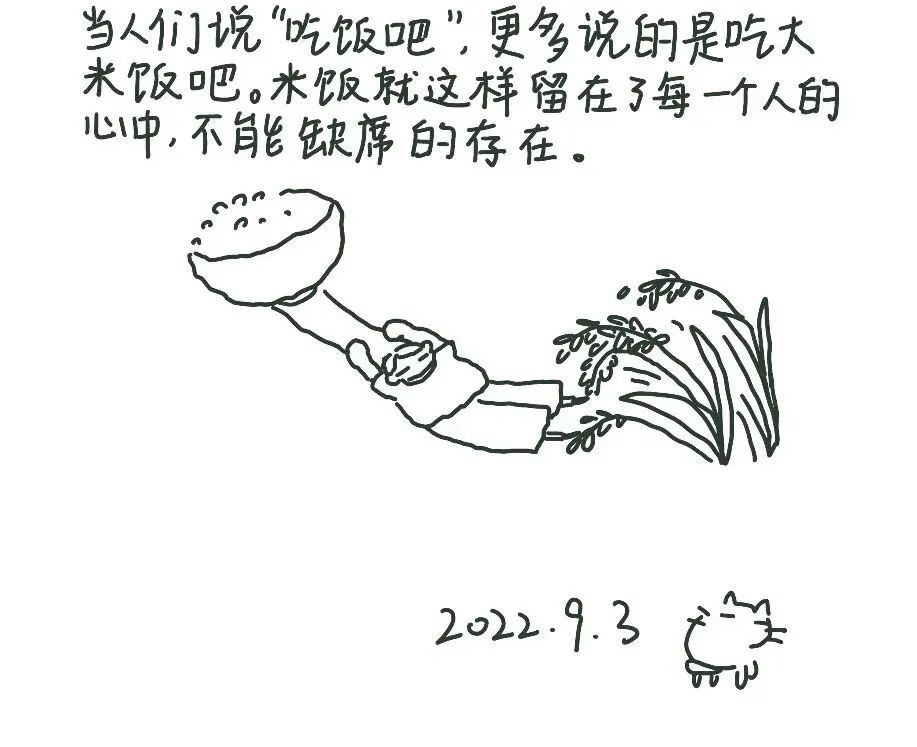 当人们说“吃饭吧”,更多说的是吃大
米饭吧。米饭就这样留在了每一个人的
心中,不能缺席的存在。
2022.9.3